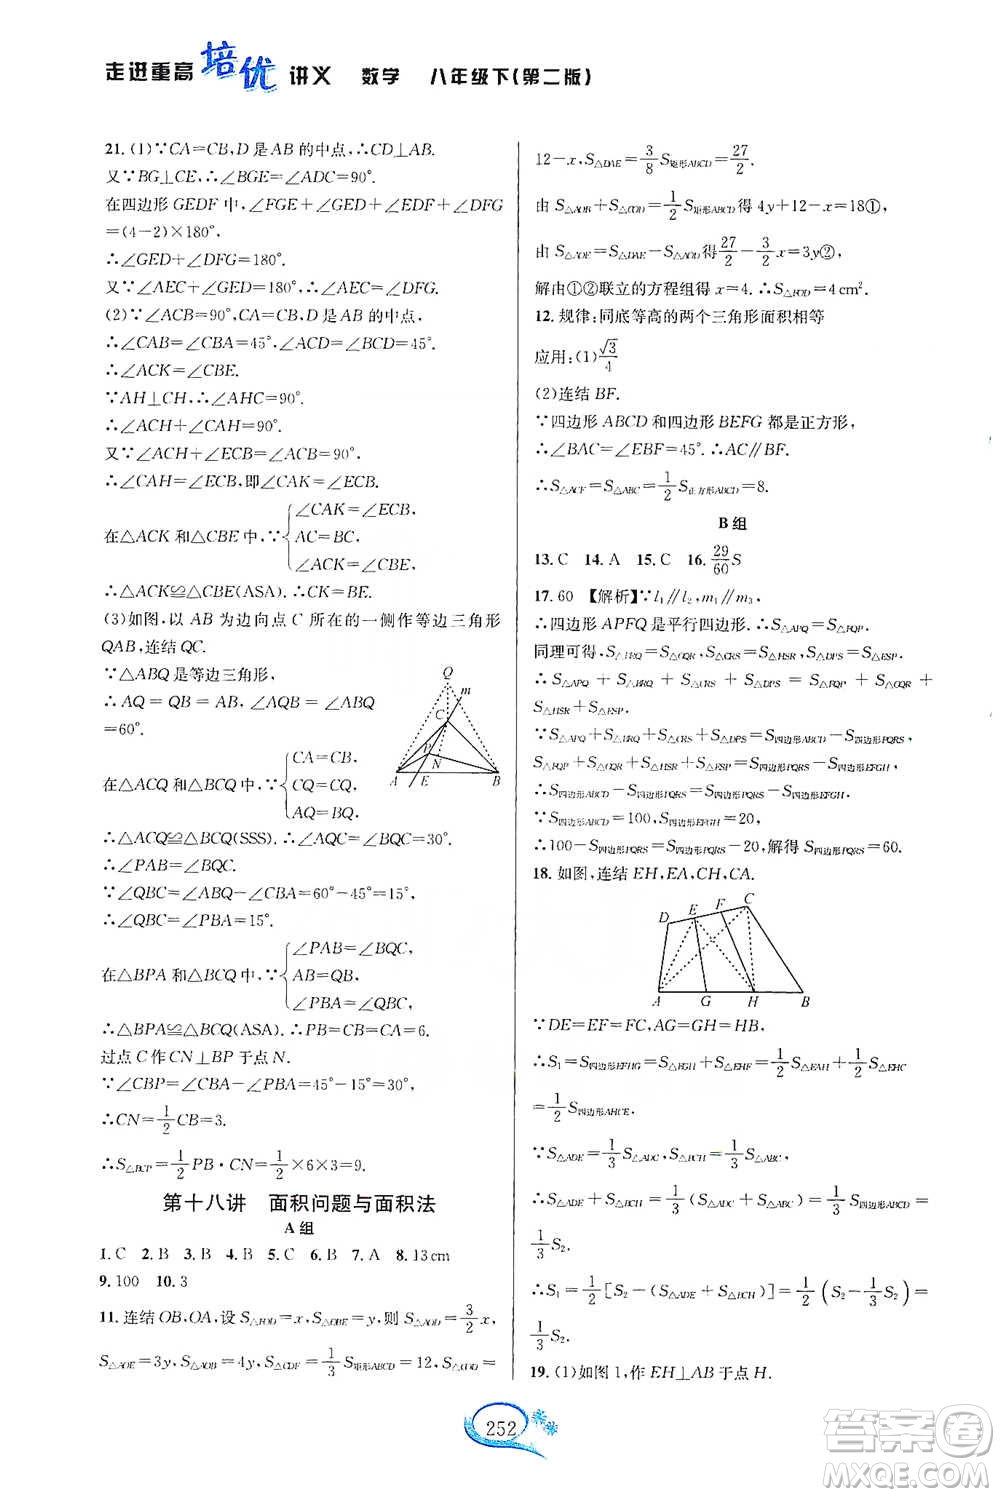 走进重高 培优 讲义 数学 八年级下(第二版)
21. (1)∵CA=CB,D是AB的中点,∴CD⊥AB.
又∵BG⊥CE,∴∠BGE=∠ADC=90°.
在四边形GEDF中,∠FGE+∠GED+∠EDF+∠DFG
=(4-2)×180°,
∴∠GED+∠DFG=180°.
又∵∠AEC+∠GED=180°,∴∠AEC=∠DFG.
(2)∵∠ACB=90°,CA=CB,D是AB的中点,
∴∠CAB=∠CBA=45°,∠ACD=∠BCD=45°.
∴∠ACK=∠CBE.
∵AH⊥CH,∴∠AHC=90°.
∴∠ACH+∠CAH=90°.
又∵∠ACH+∠ECB=∠ACB=90°,
∴∠CAH=∠ECB,即∠CAK=∠ECB.
在△ACK和△CBE中,∵{∠CAK=∠ECB, AC=BC, ∠ACK=∠CBE,
∴△ACK≌△CBE(ASA).∴CK=BE.
(3)如图,以AB为边向点C所在的一侧作等边三角形
QAB,连结QC.
∵△ABQ是等边三角形,
∴AQ=QB=AB,∠QBA
=60°.
Q
m
C
D
N
A E B
在△ACQ和△BCQ中,∵{CA=CB, CQ=CQ, AQ=BQ,
∴△ACQ≌△BCQ(SSS).∴∠AQC=∠BQC=30°.
∴∠PAB=∠BQC.
∵∠QBC=∠ABQ-∠CBA=60°-45°=15°.
∴∠QBC=∠PBA=15°.
在△BPA和△BCQ中,∵{∠PAB=∠BQC, AB=QB, ∠PBA=∠QBC,
∴△BPA≌△BCQ(ASA).∴PB=CB=CA=6.
过点C作CN⊥BP于点N.
∵∠CBP=∠CBA-∠PBA=45°-15°=30°.
∴CN=1/2 CB=3.
∴S△BCP=1/2 PB·CN=1/2×6×3=9.
第十八讲 面积问题与面积法
A组
1. C 2. B 3. B 4. B 5. C 6. B 7. A 8. 13cm
9. 100 10. 3
11. 连结OB,OA,设S△FOD=x,S△OBE=y,则S△AOD=3/2 x,
S△AOE=3y,S△AOB=4y,S△CDF=1/3 S矩形ABCD=12,S△COD=
12-x,S△DAE=3/8 S矩形ABCD=27/2.
由S△AOB+S△COD=1/2 S矩形ABCD得4y+12-x=18①,
由S△AOE=S△DAE-S△AOD得27/2-3/2 x=3y②,
解由①②联立的方程组得x=4.∴S△FOD=4cm².
12. 规律:同底等高的两个三角形面积相等
应用:(1)√3/4
(2)连结BF.
∵四边形ABCD和四边形BEFG都是正方形,
∴∠BAC=∠EBF=45°.∴AC∥BF.
∴S△ACF=S△ABC=1/2 S正方形ABCD=8.
B组
13. C 14. A 15. C 16. 29/60 S
17. 60 【解析】∵l₁∥l₂,m₁∥m₃,
∴四边形APFQ是平行四边形.∴S△APQ=S△FQP.
同理可得:S△BRQ=S△GQR,S△CRS=S△HSR,S△DPS=S△ESP.
∴S△APQ+S△BRQ+S△CRS+S△DPS=S△FQP+S△GQR+
S△HSR+S△ESP.
∵S△APQ+S△BRQ+S△CRS+S△DPS=S四边形ABCD-S四边形PQRS,
S△FQP+S△GQR+S△HSR+S△ESP=S四边形PQRS-S四边形EFGH,
∴S四边形ABCD-S四边形PQRS=S四边形PQRS-S四边形EFGH.
∵S四边形ABCD=100,S四边形EFGH=20,
∴100-S四边形PQRS=S四边形PQRS-20,解得S四边形PQRS=60.
18. 如图,连结EH,EA,CH,CA.
D E F C
A G H B
∵DE=EF=FC,AG=GH=HB,
∴S₁=S四边形EFHG=S△EGH+S△EHF=1/2 S△EAH+1/2 S△EHC
=1/2 S四边形AHCE.
∵S△ADE=1/3 S△ADC,S△BCH=1/3 S△ABC,
∴S△ADE+S△BCH=1/3(S△ADC+S△ABC)=1/3 S四边形ABCD=
1/3 S₂.
∴S₁=1/2[S₂-(S△ADE+S△BCH)]=1/2(S₂-1/3 S₂)=
1/3 S₂.
19. (1)如图1,作EH⊥AB于点H.
252
答案圈
MXQE.COM